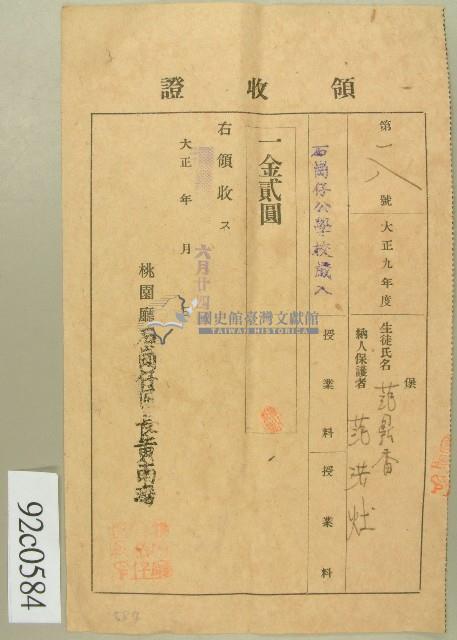 領收證
第一八號
大正九年度
保
生徒氏名 范景香
納人保護者 范洪灶
石崗仔公學校歲入
授業料
授業料
一金貳圓
右領收ス
大正 年 月
六月廿四
桃園廳石崗仔區長黃南球
國史館臺灣文獻館
TAIWAN HISTORICA
92c0584